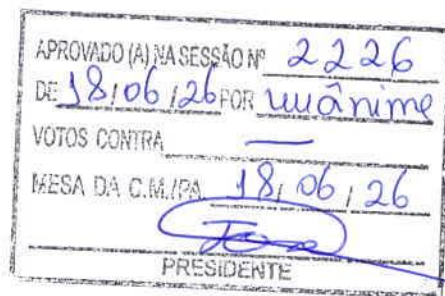 APROVADO (A) NA SESSÃO Nº 2226
DE 18/06/26 POR unânime
VOTOS CONTRA —
MESA DA C.M./PA 18/06/26
PRESIDENTE